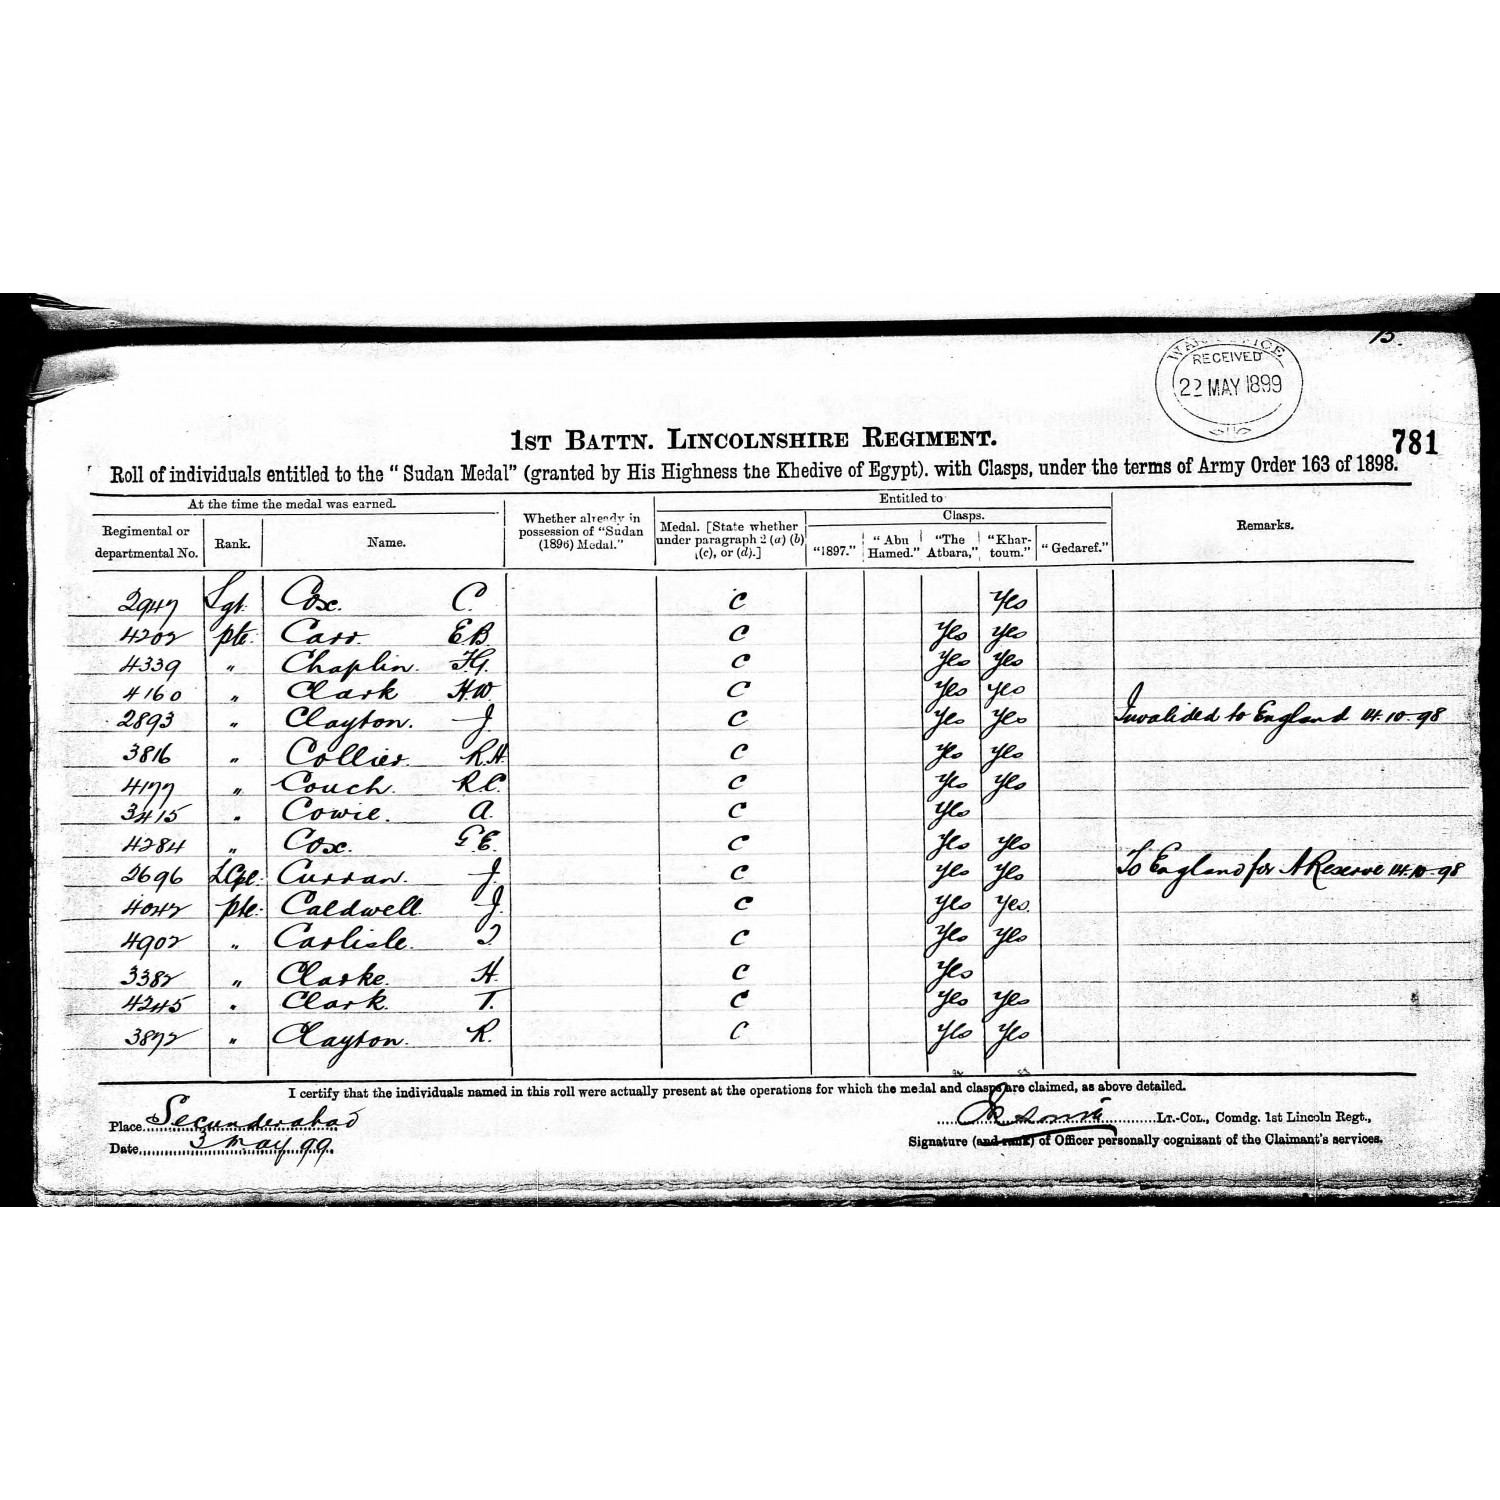 13.
WAR OFFICE
RECEIVED
22 MAY 1899
1ST BATTN. LINCOLNSHIRE REGIMENT.
781
Roll of individuals entitled to the "Sudan Medal" (granted by His Highness the Khedive of Egypt). with Clasps, under the terms of Army Order 163 of 1898.
At the time the medal was earned.
Regimental or departmental No.
Rank.
Name.
Whether already in possession of "Sudan (1896) Medal."
Entitled to
Medal. [State whether under paragraph 2 (a) (b) (c), or (d).]
Clasps.
"1897."
"Abu Hamed."
"The Atbara,"
"Khar-toum."
"Gedaref."
Remarks.
2947 Sgt. Cox. C. C Yes
4202 pte. Carr. E.B. C Yes Yes
4339 " Chaplin. F.G. C Yes Yes
4160 " Clark H.W. C Yes Yes
2893 " Clayton. J. C Yes Yes Invalided to England 14.10.98
3816 " Collier. R.H. C Yes Yes
4177 " Couch. R.C. C Yes Yes
3415 " Cowie. A. C Yes
4284 " Cox. G.E. C Yes Yes
2696 LCpl. Curran. J. C Yes Yes To England for A Reserve 14.10.98
4042 pte. Caldwell J. C Yes Yes.
4902 " Carlisle. C Yes Yes
3382 " Clarke. H. C Yes
4245 " Clark. T. C Yes Yes
3872 " Clayton. R. C Yes Yes
I certify that the individuals named in this roll were actually present at the operations for which the medal and clasps are claimed, as above detailed.
Place Secunderabad
Date 3 May 99.
LT.-COL., Comdg. 1st Lincoln Regt.,
Signature (and rank) of Officer personally cognizant of the Claimant's services.